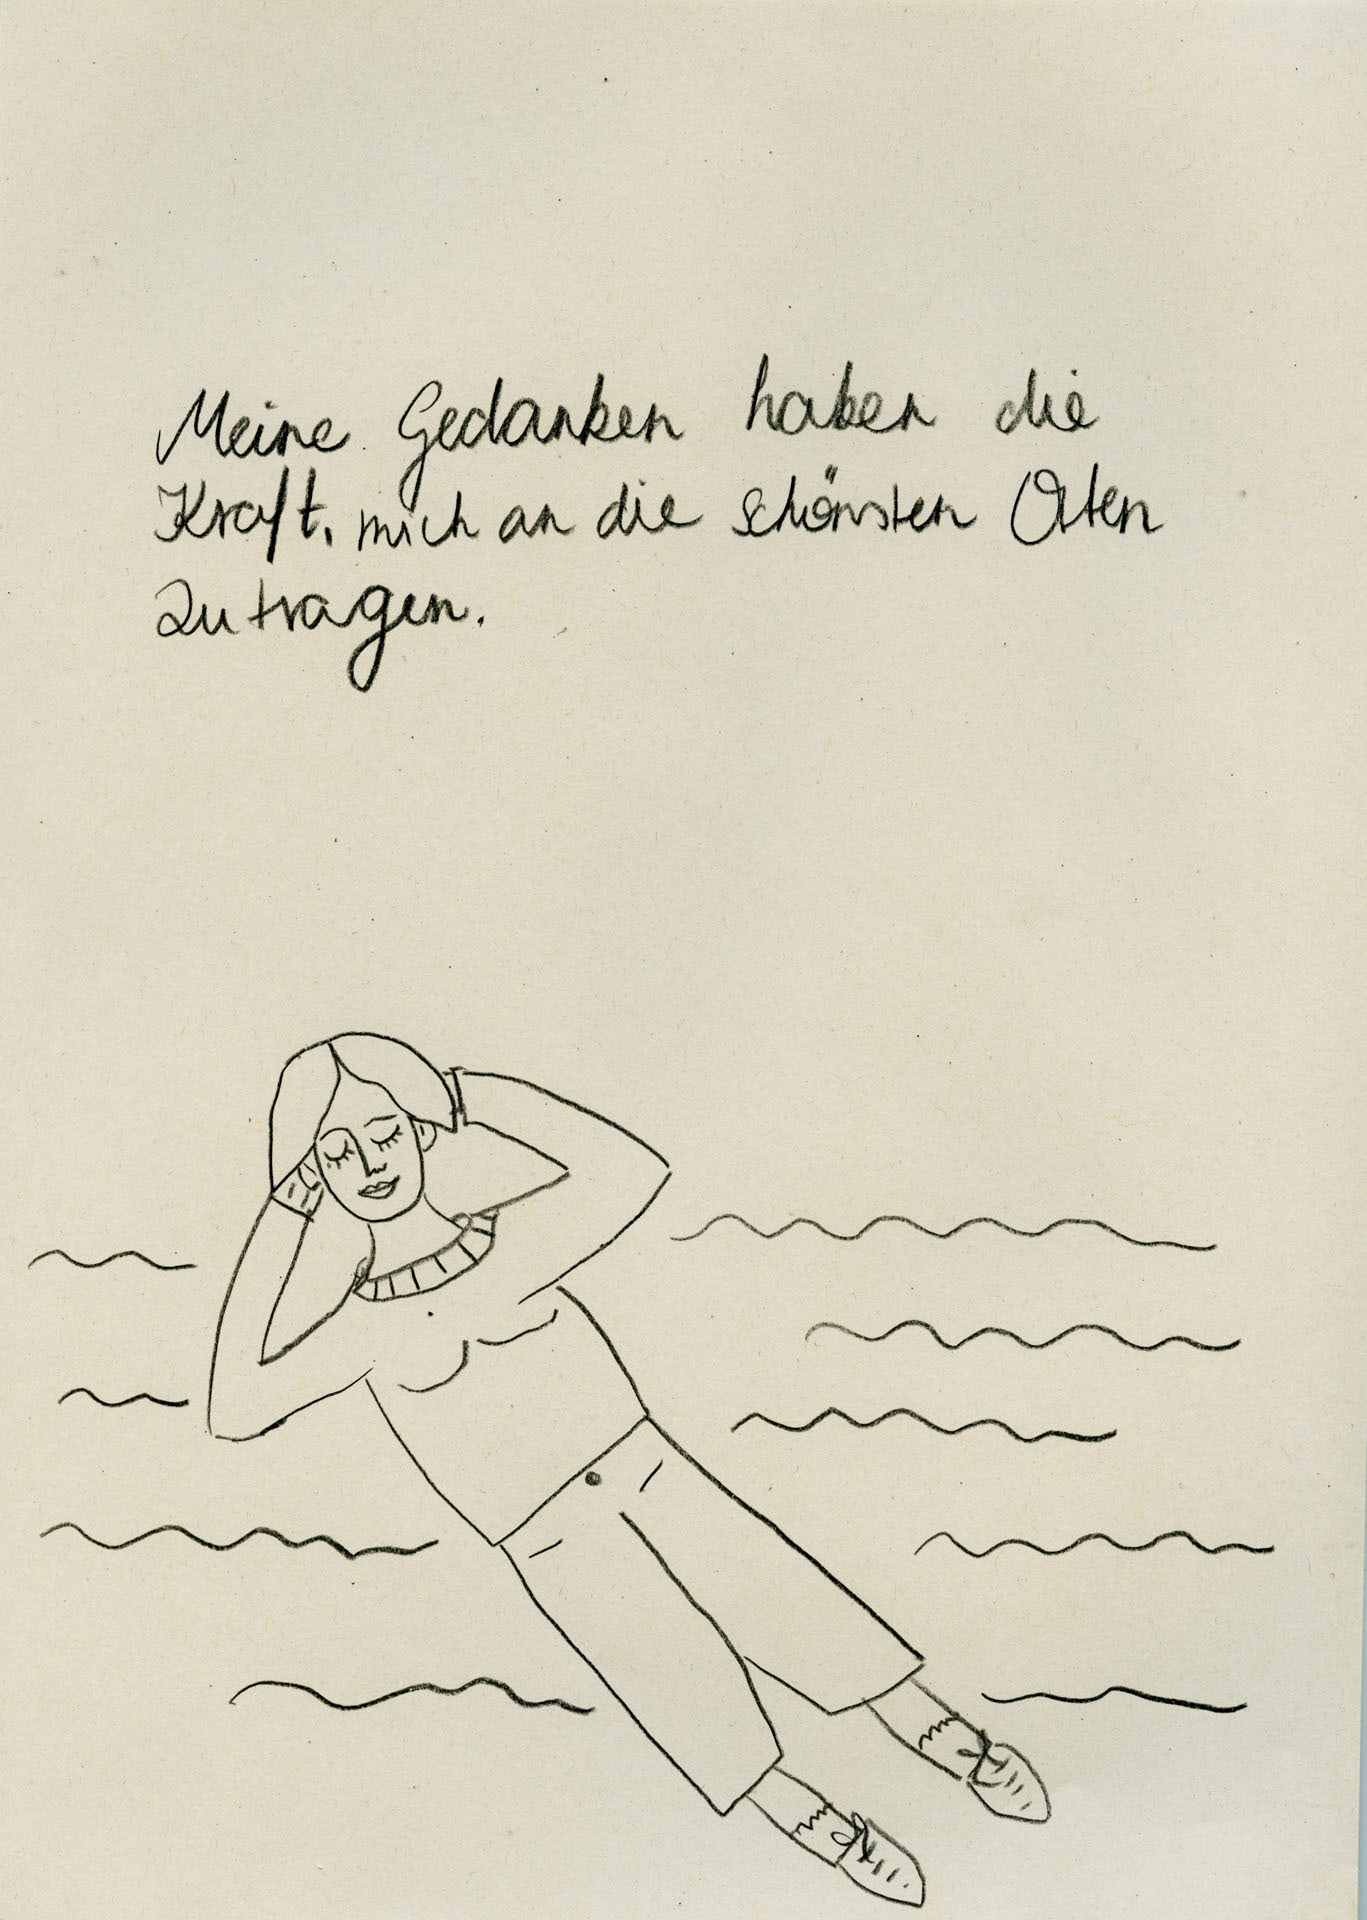 Meine Gedanken haben die
Kraft, mich an die schönsten Orten
zu tragen.